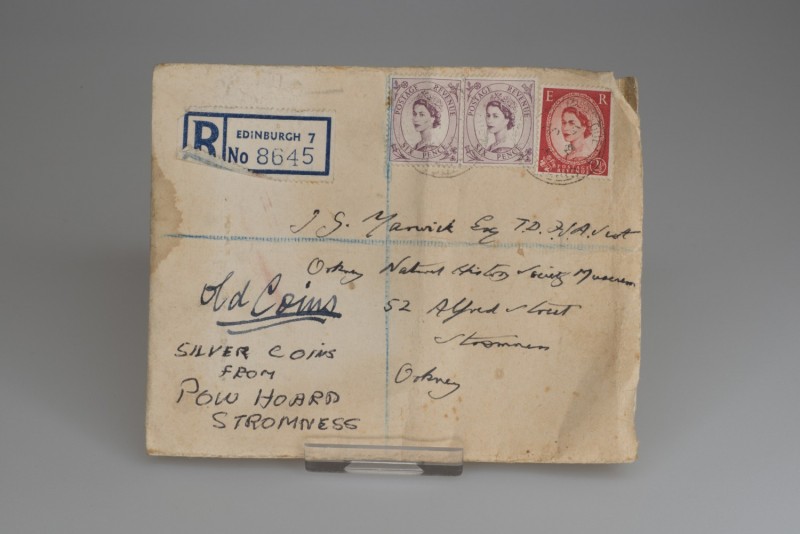 R EDINBURGH 7
No 8645
POSTAGE REVENUE
SIX PENCE
POSTAGE REVENUE
SIX PENCE
E R
POSTAGE REVENUE
2½D
J G. Marwick Esq T.D. F.S.A. Scot
Orkney Natural History Society Museum
52 Alfred Street
Stromness
Orkney
Old Coins
SILVER COINS
FROM
POW HOARD
STROMNESS